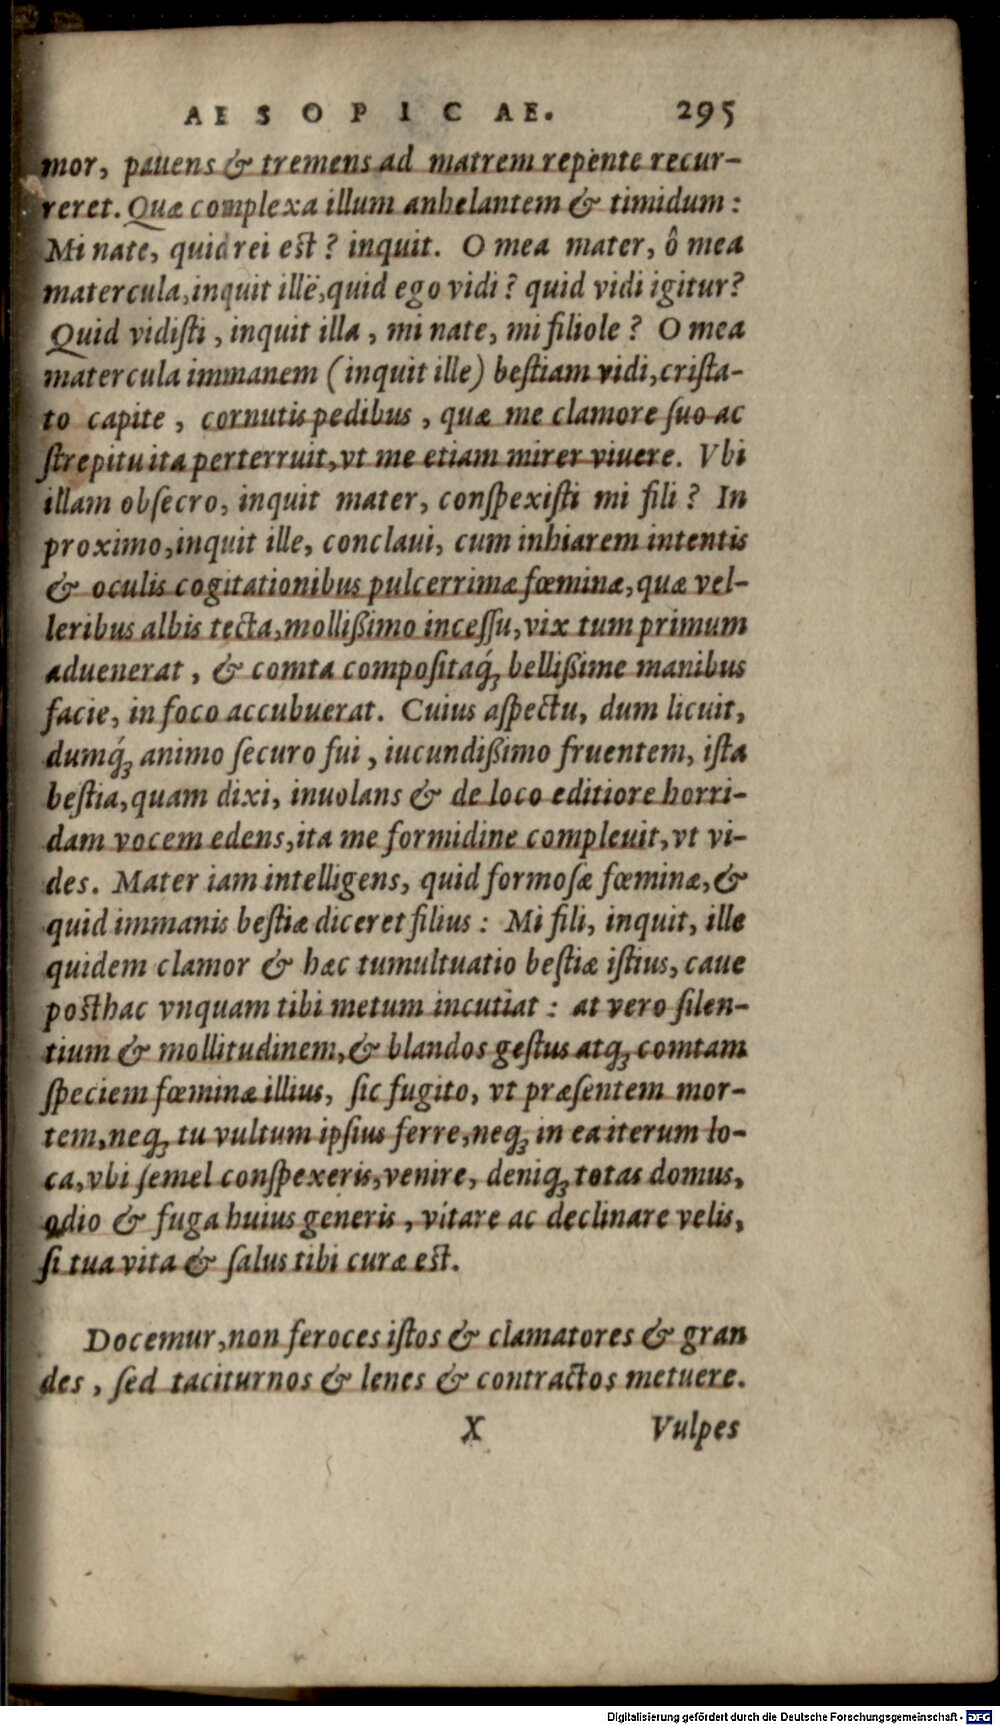 AESOPICAE. 295
mor, pauens & tremens ad matrem repente recur-
reret. Quæ complexa illum anhelantem & timidum:
Mi nate, quid rei est? inquit. O mea mater, ô mea
matercula, inquit ille, quid ego vidi? quid vidi igitur?
Quid vidisti, inquit illa, mi nate, mi filiole? O mea
matercula immanem (inquit ille) bestiam vidi, crista-
to capite, cornutis pedibus, quæ me clamore suo ac
strepitu ita perterruit, vt me etiam mirer viuere. Vbi
illam obsecro, inquit mater, conspexisti mi fili? In
proximo, inquit ille, conclaui, cum inhiarem intentis
& oculis cogitationibus pulcerrimæ fœminæ, quæ vel-
leribus albis tecta, mollißimo incessu, vix tum primum
aduenerat, & comta compositaq́ꝫ bellißime manibus
facie, in foco accubuerat. Cuius aspectu, dum licuit,
dumq́ꝫ animo securo fui, iucundißimo fruentem, ista
bestia, quam dixi, inuolans & de loco editiore horri-
dam vocem edens, ita me formidine compleuit, vt vi-
des. Mater iam intelligens, quid formosæ fœminæ, &
quid immanis bestiæ diceret filius: Mi fili, inquit, ille
quidem clamor & hæc tumultuatio bestiæ istius, caue
posthac vnquam tibi metum incutiat: at vero silen-
tium & mollitudinem, & blandos gestus atqꝫ comtam
speciem fœminæ illius, sic fugito, vt præsentem mor-
tem, neqꝫ tu vultum ipsius ferre, neqꝫ in ea iterum lo-
ca, vbi semel conspexeris, venire, deniqꝫ totas domus,
odio & fuga huius generis, vitare ac declinare velis,
si tua vita & salus tibi curæ est.
Docemur, non feroces istos & clamatores & gran
des, sed taciturnos & lenes & contractos metuere.
X Vulpes
Digitalisierung gefördert durch die Deutsche Forschungsgemeinschaft - DFG